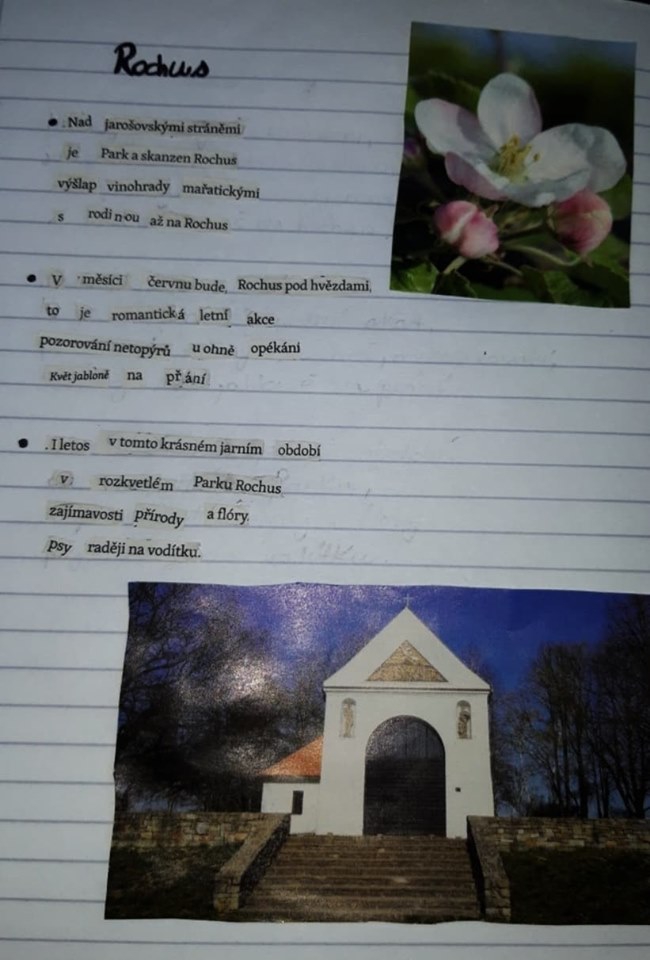 Rochus
• Nad jarošovskými stráněmi
je Park a skanzen Rochus
výšlap vinohrady mařatickými
s rodinou až na Rochus
• V měsíci červnu bude, Rochus pod hvězdami,
to je romantická letní akce
pozorování netopýrů u ohně opékáni
Květ jabloně na přání
• . I letos v tomto krásném jarním období
v rozkvetlém Parku Rochus
zajímavosti přírody a flóry,
psy raději na vodítku.